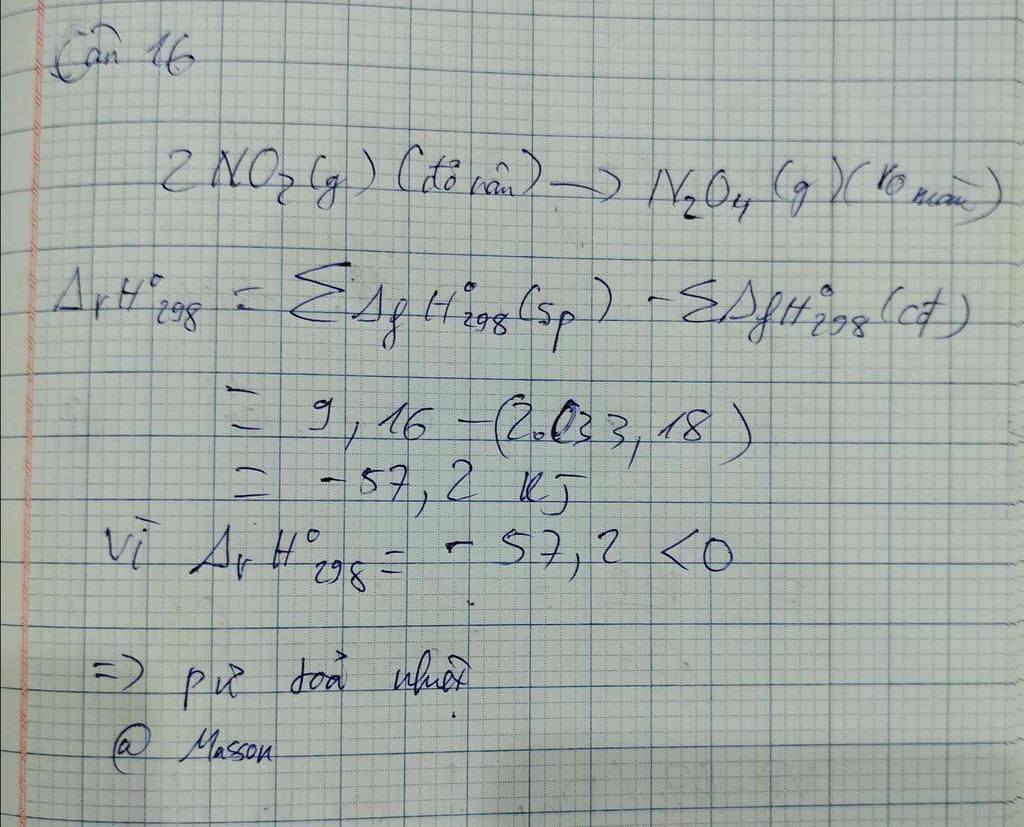 Câu 16
2NO₂(g) (đỏ nâu) → N₂O₄ (g) (ko màu)
ΔrH°₂₉₈ = ΣΔfH°₂₉₈(sp) - ΣΔfH°₂₉₈(cđ)
= 9,16 - (2.33,18)
= -57,2 KJ
Vì ΔrH°₂₉₈ = -57,2 < 0
=> pư toả nhiệt
@ Masson